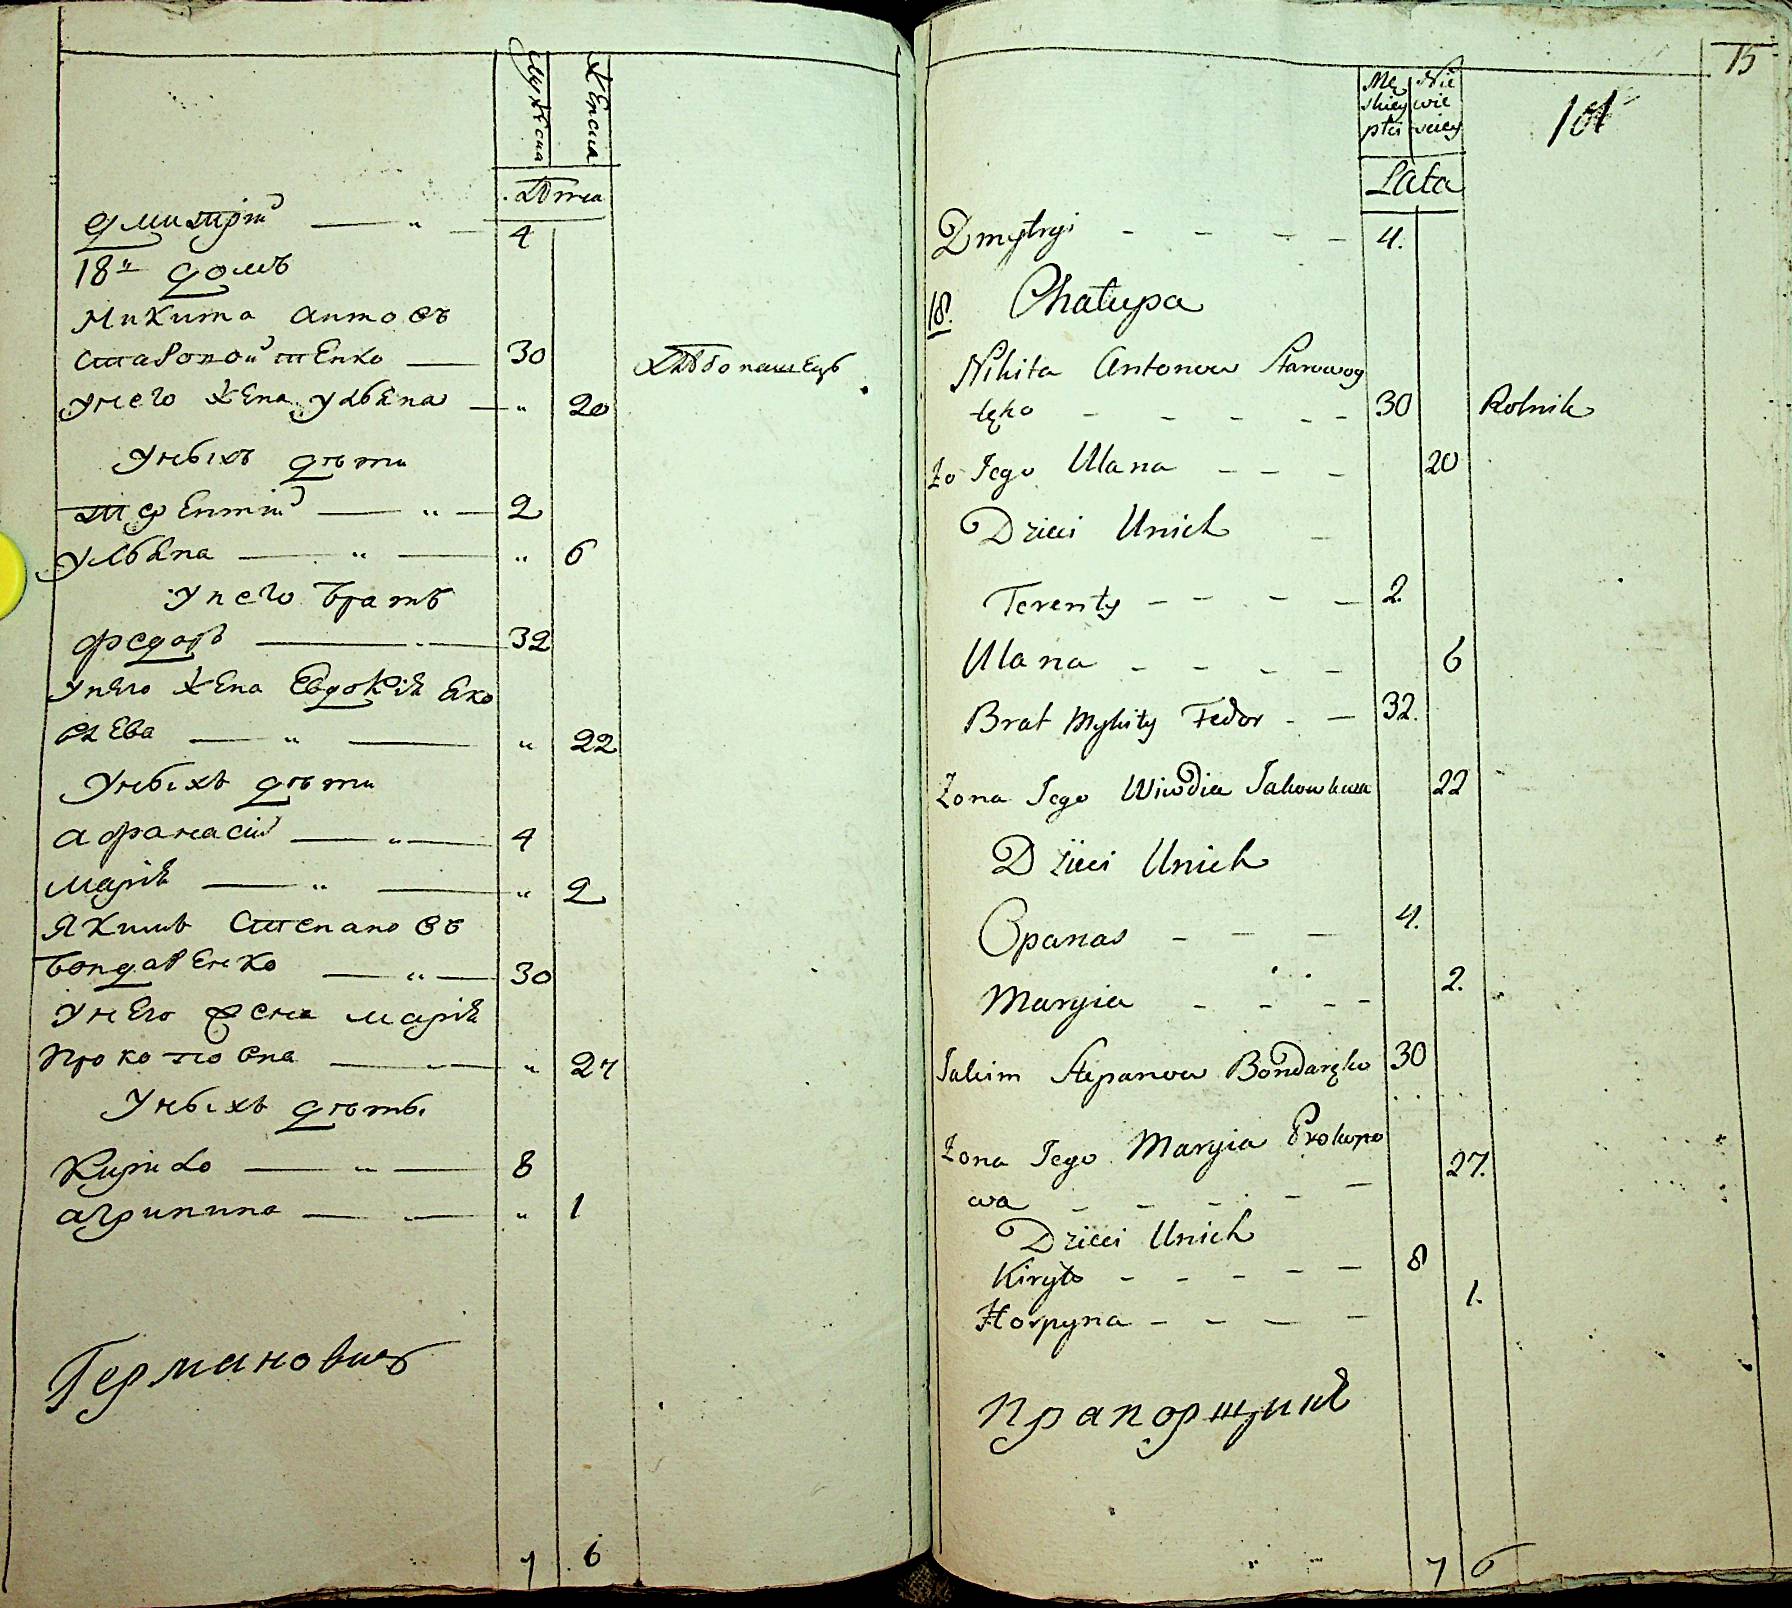 Мужска
Женска
Лѣта
Дмитрій — " — 4
18й домъ
Микита антовъ
Старовойтенко — 30 Хлѣбопашецъ
у него жена Ульяна — " 20
У ныхъ дѣти
Терентій — " — 2
Ульяна — " — " 6
У него братъ
Федоръ — 32
У него жена Евдокія Яко
влева — " — " 22
У ныхъ дѣти
Афанасій — " — 4
Марія — " — " 2
Якимъ Степановъ
Бондаренко — " — 30
У него жена Марія
Прокоповна — " 27
У ныхъ дѣты
Кирило — " — 8
Агрипина — " 1
Германовичъ
7 6
15
Mę Nie
skiey wie
płci sciey
101
Lata
Dmytryi - - - - 4.
18. Chałupa
Nikita Antonow Starowoy
tęko - - - - - 30 Rolnik
Żo Jego Ulana - - - 20
Dzieci Unich -
Terenty - - - - 2.
Ulana - - - - 6
Brat Mykity Fedor - - 32.
Żona Jego Wiwdia Jakowlewa 22
Dzieci Unich
Opanas - - - 4.
Maryia - - - - 2.
Jakim Stepanow Bondaręko 30
Żona Jego Maryia Prokopo
wa - - - - - 27.
Dzieci Unich
Kiryło - - - - - 8
Horpyna - - - - 1.
Прапорщикъ
7 6